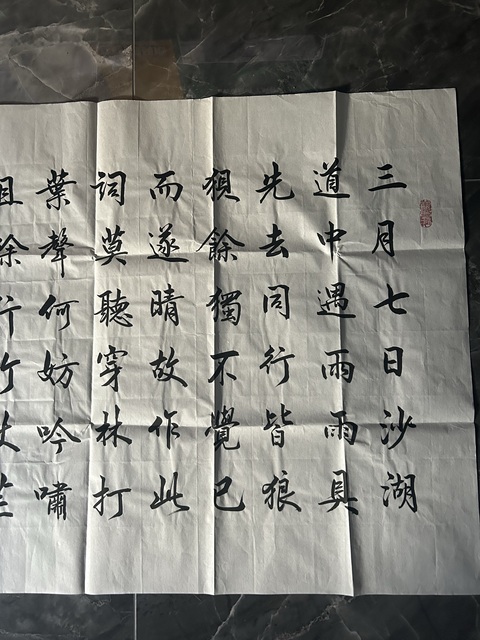 三月七日沙湖
道中遇雨雨具
先去同行皆狼
狽餘獨不覺已
而遂晴故作此
詞莫聽穿林打
葉聲何妨吟嘯
且徐行竹杖芒